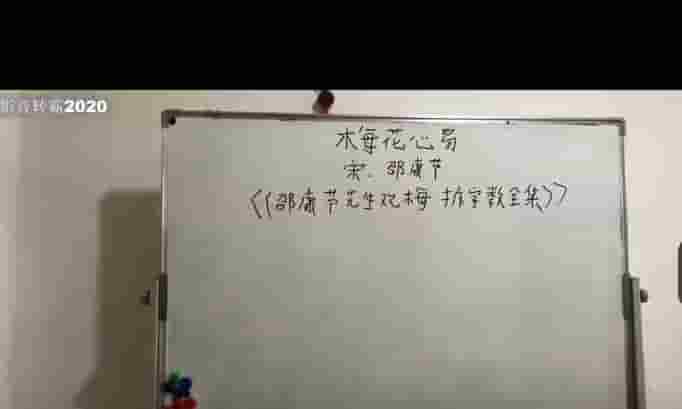 2020
梅花心易
宋.邵康节
《邵康节先生观梅拆字数全集》